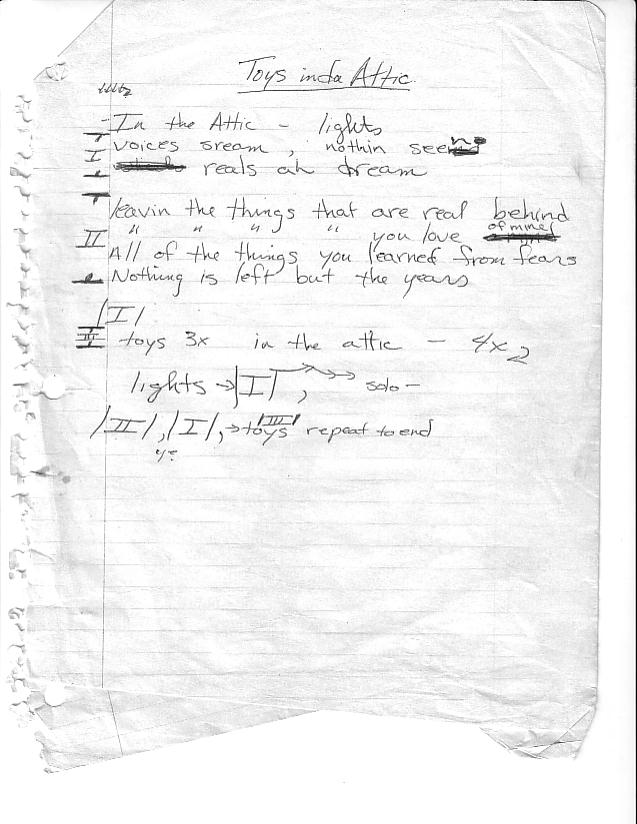 Toys inda Attic
- In the Attic - lights
I voices sream, nothin seen
reals ah dream
leavin the things that are real behind
" " " " you love of mine
II All of the things you learned from fears
Nothing is left but the years
|I|
III toys 3x in the attic - 4x2
lights → |I|, solo -
|II|, |I|, → toys |III| repeat to end